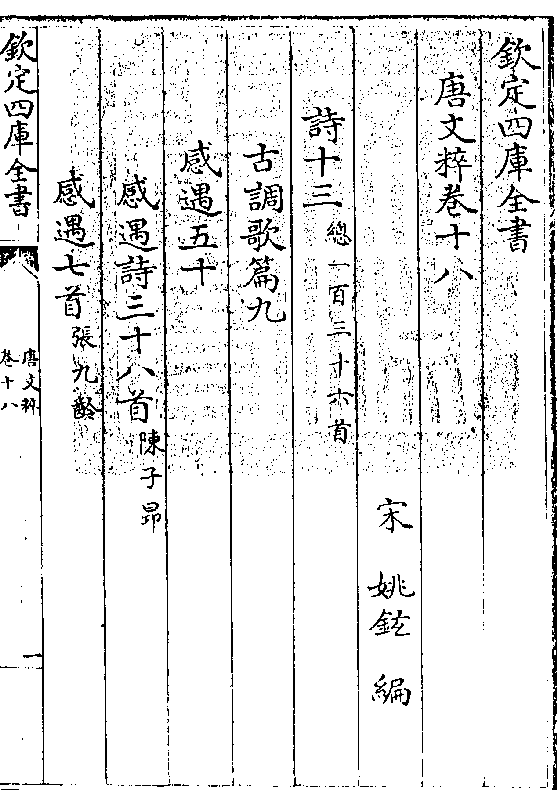 欽定四庫全書
唐文粹卷十八
宋 姚鉉 編
詩十三 總一百三十六首
古調歌篇九
感遇五十
感遇詩三十八首 陳子昂
感遇七首 張九齡
欽定四庫全書
唐文粹
卷十八
一